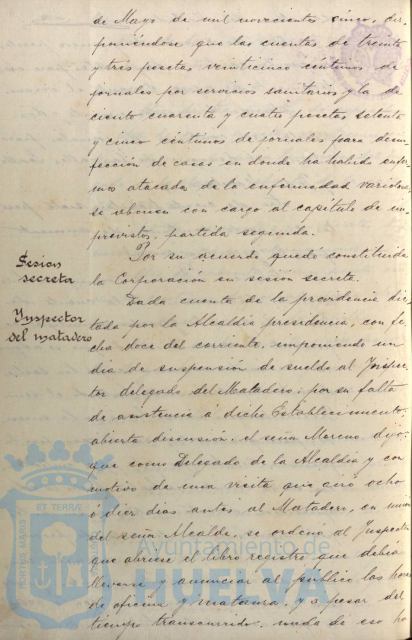 de Mayo de mil novecientos cinco, dis-
poniéndose que las cuentas de treinta
y tres pesetas veinticinco céntimos de
jornales por servicios sanitarios y la de
ciento cuarenta y cuatro pesetas setenta
y cinco céntimos de jornales para desin-
fección de casas en donde ha habido enfer-
mos atacados de la enfermedad variolosa,
se abonen con cargo al capítulo de im-
previstos, partida segunda.
Por su acuerdo quedó constituida
la Corporación en sesión secreta.
Sesion
secreta
Dada cuenta de la providencia dic-
tada por la Alcaldía presidencia, con fe-
cha doce del corriente, imponiendo un
dia de suspensión de sueldo al Inspec-
tor delegado del Matadero, por su falta
de asistencia á dicho Establecimiento,
abierta discusión, el señor Moreno dijo:
que como Delegado de la Alcaldía y con
motivo de una visita que giró ocho
ó diez dias antes al Matadero, en unión
del señor Alcalde, se ordenó al Inspector
que abriese el libro registro que debia
llevarse y anunciar al público las horas
de oficina y matanza, y a pesar del
tiempo transcurrido, nada de eso ha
Inspector
del matadero
Ayuntamiento de
HUELVA